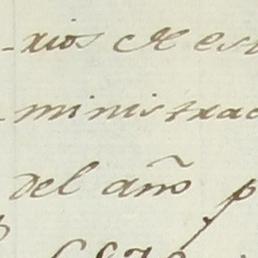 -xios de est
ministrac
del año p